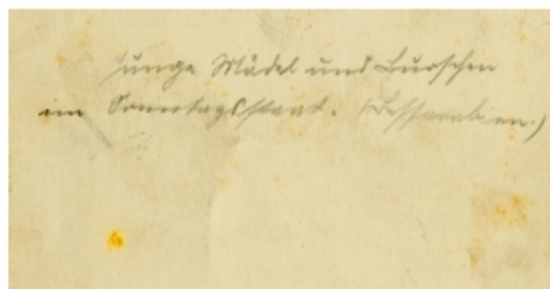 Junge Mädel und Burschen
im Sonntagsstaat. (Bessarabien.)